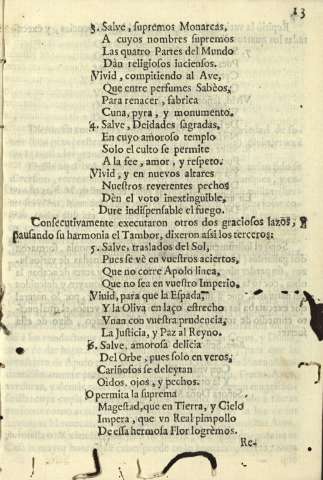 13
3. Salve, supremos Monarcas,
A cuyos nombres supremos
Las quatro Partes del Mundo
Dàn religiosos inciensos.
Vivid, compitiendo al Ave,
Que entre perfumes Sabèos,
Para renacer, fabrica
Cuna, pyra, y monumento.
4. Salve, Deidades sagradas,
En cuyo amoroso templo
Solo el culto se permite
A la fee, amor, y respeto.
Vivid, y en nuevos altares
Nuestros reverentes pechos
Dèn el voto inextinguible,
Dure indispensable el fuego.
Consecutivamente executaron otros dos graciosos lazos, y
pausando su harmonia el Tambor, dixeron assi los terceros:
5. Salve, traslados del Sol,
Pues se vè en vuestros aciertos,
Que no corre Apolo linea,
Que no sea en vuestro Imperio.
Viuid, para que la Espada,
Y la Oliva en laço estrecho
Vnan con vuestra prudencia,
La Justicia, y Paz al Reyno.
6. Salve, amorosa delicia
Del Orbe, pues solo en veros,
Cariñosos se deleytan
Oidos, ojos, y pechos.
O permita la suprema
Magestad, que en Tierra, y Cielo
Impera, que vn Real pimpollo
De essa hermosa Flor logrèmos.
Re-